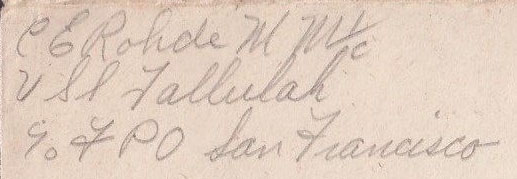 C E Rohde M M 1/c
U S S Tallulah
℅ F P O San Francisco